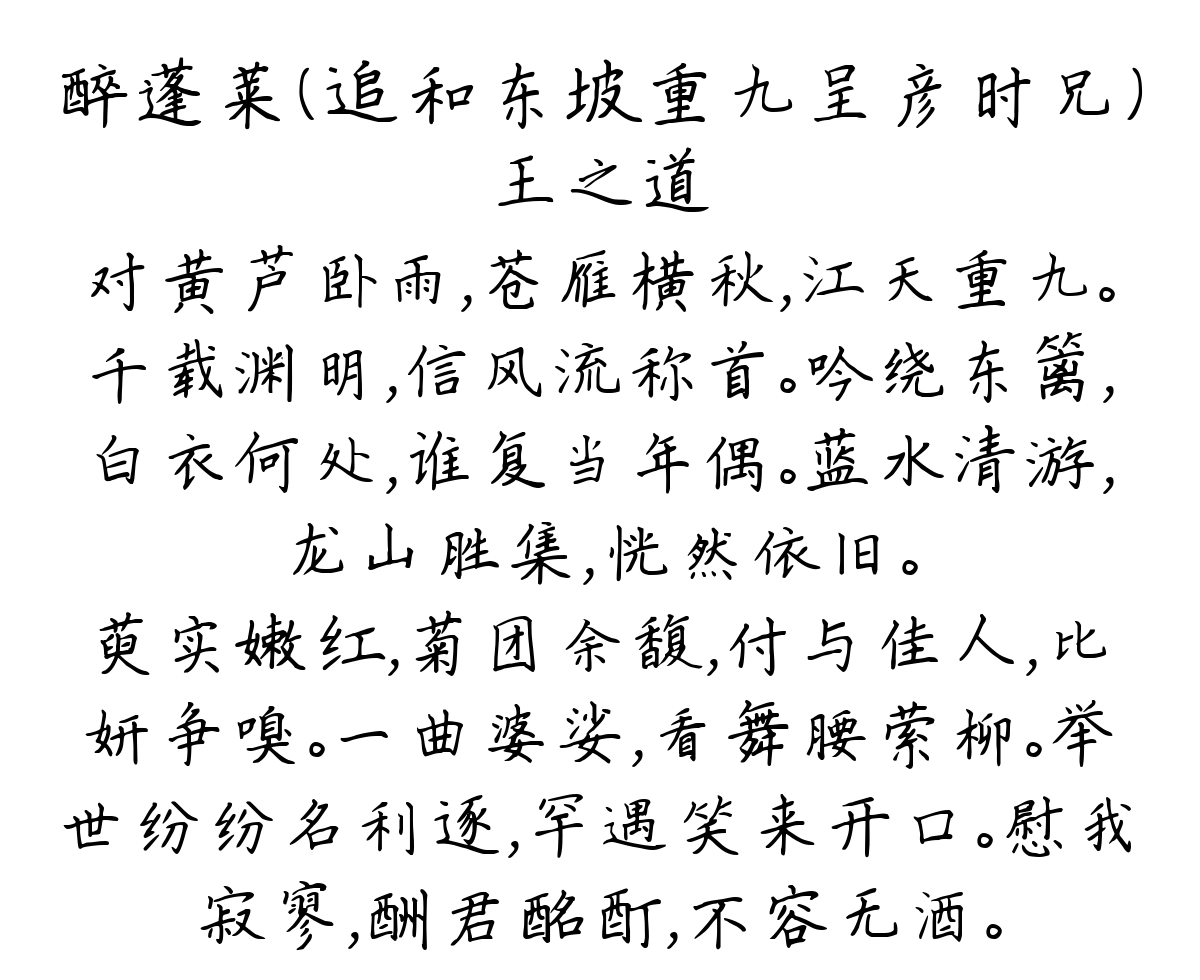 醉蓬莱(追和东坡重九呈彦时兄)
王之道
对黄芦卧雨,苍雁横秋,江天重九。
千载渊明,信风流称首。吟绕东篱,
白衣何处,谁复当年偶。蓝水清游,
龙山胜集,恍然依旧。
萸实嫩红,菊团余馥,付与佳人,比
妍争嗅。一曲婆娑,看舞腰萦柳。举
世纷纷名利逐,罕遇笑来开口。慰我
寂寥,酬君酩酊,不容无酒。